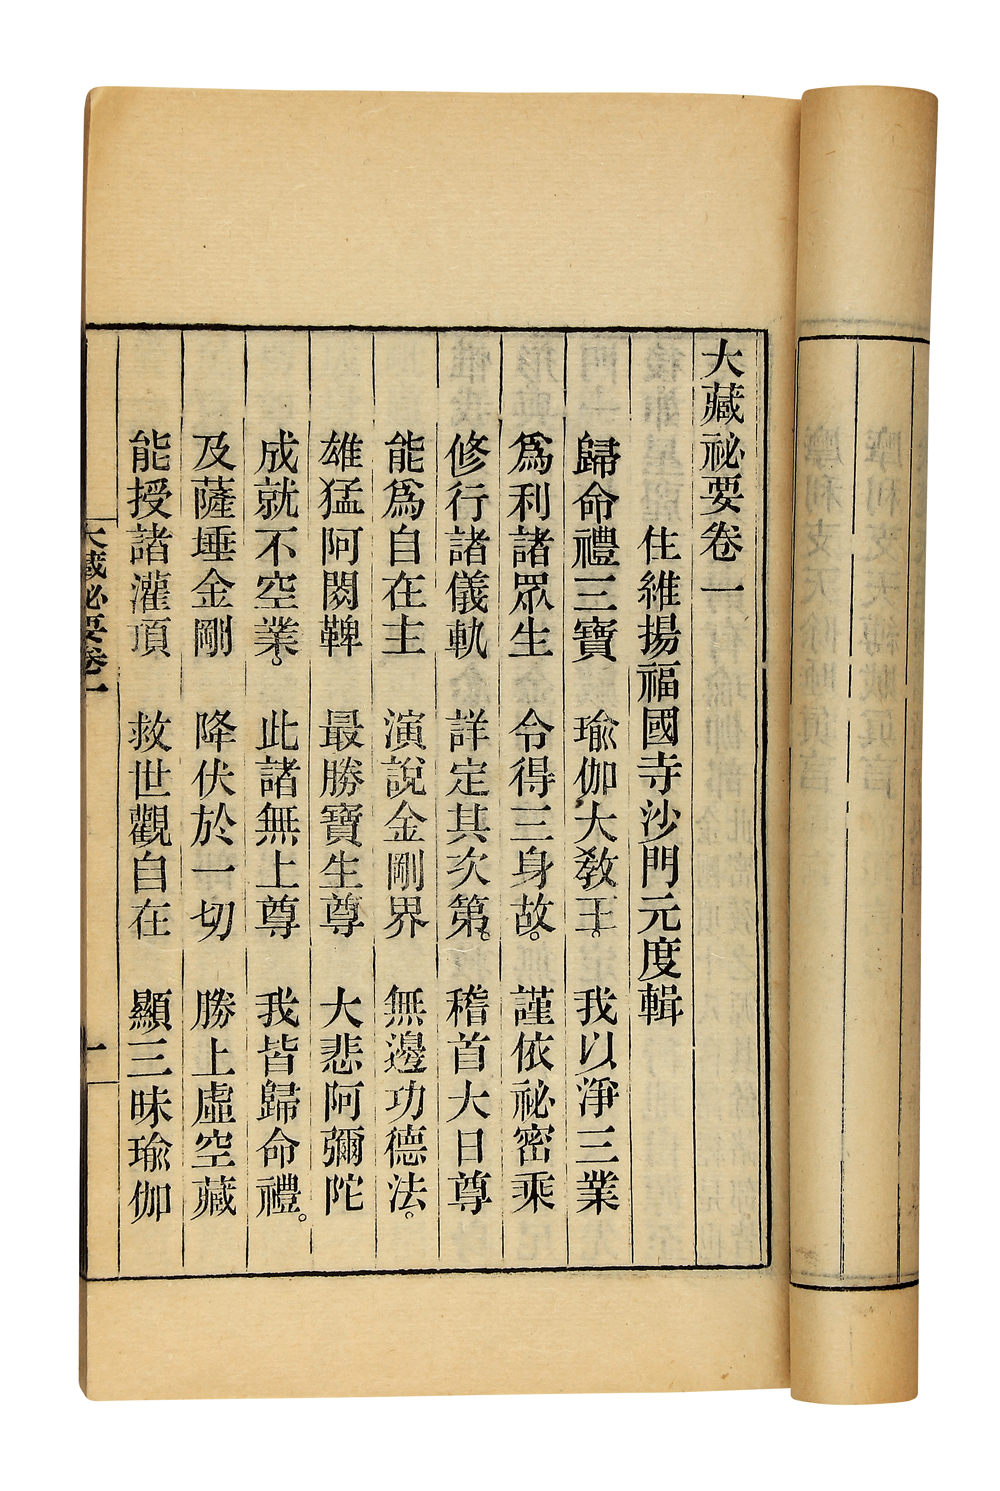 大藏祕要卷一
住維揚福國寺沙門元度輯
歸命禮三寶 瑜伽大教王。 我以淨三業
爲利諸眾生 令得三身故。 謹依祕密乘
修行諸儀軌 詳定其次第。 稽首大日尊
能爲自在主 演說金剛界 無邊功德法。
雄猛阿閦鞞 最勝寶生尊 大悲阿彌陀
成就不空業。 此諸無上尊 我皆歸命禮。
及薩埵金剛 降伏於一切 勝上虛空藏
能授諸灌頂 救世觀自在 顯三昧瑜伽
大藏祕要卷一 一